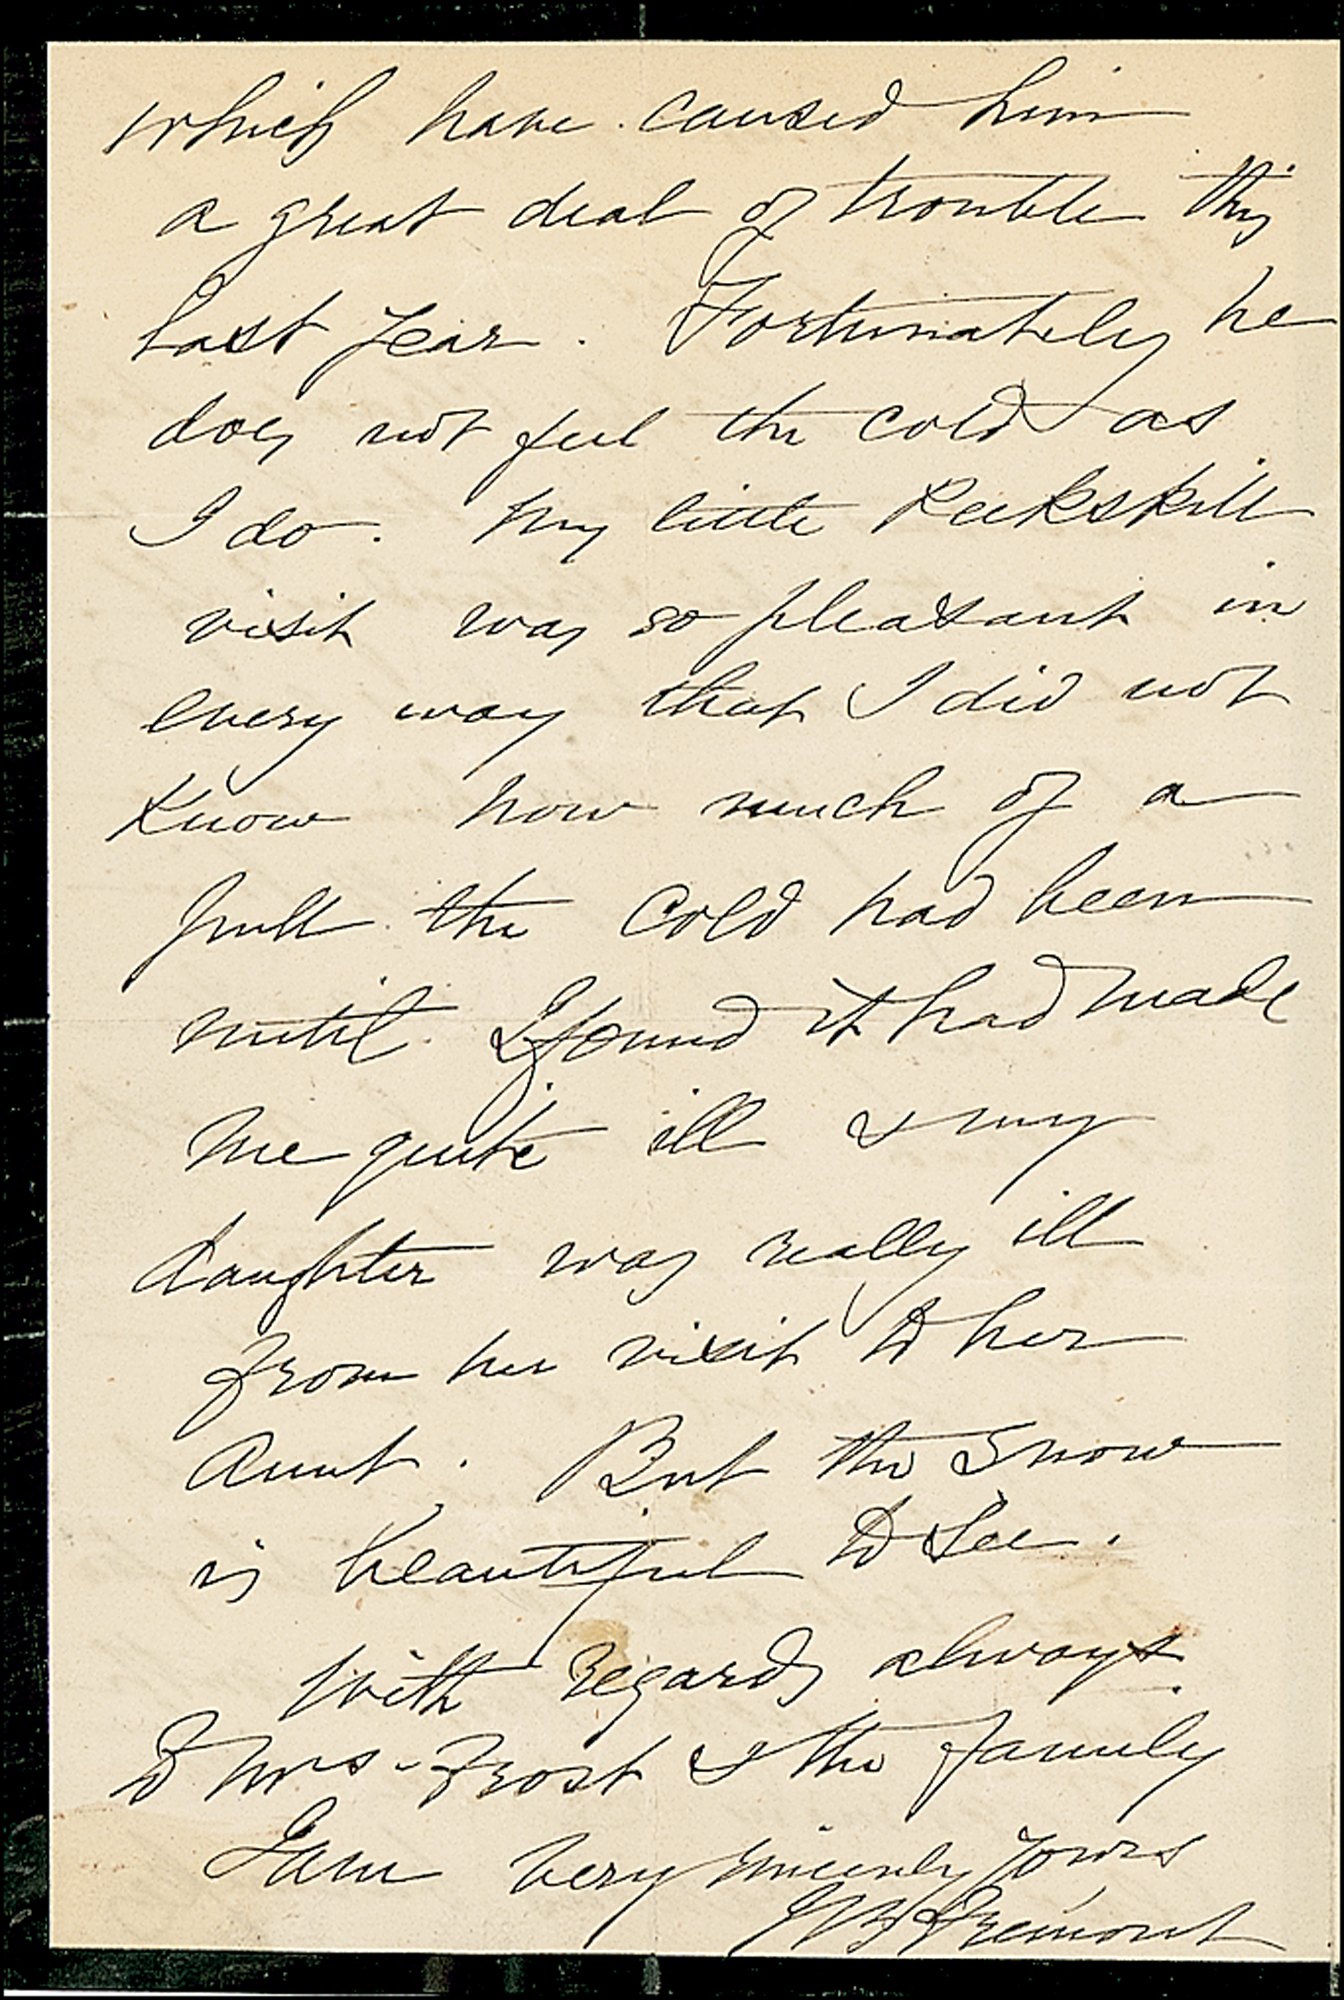 which have caused him
a great deal of trouble this
last year. Fortunately he
does not feel the cold as
I do. My little Peekskill
visit was so pleasant in
every way that I did not
know how much of a
pull the cold had been
until I found it had made
me quite ill & my
daughter was really ill
from her visit to her
Aunt. But the snow
is beautiful to see.
With regards always
to Mrs. Frost & the family
I am very sincerely yours
JB Frémont